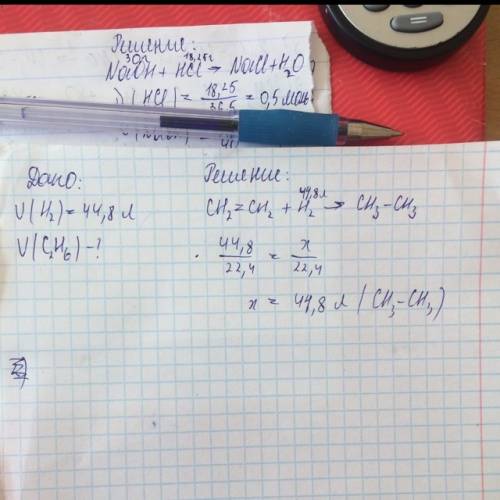 Решение:
30г 18,25г
NaOH + HCl → NaCl + H₂O
1) (HCl) = 18,25 / 36,5 = 0,5 моль
Дано:
V(H₂) = 44,8 л
V(C₂H₆) - ?
Решение:
44,8 л
CH₂=CH₂ + H₂ → CH₃-CH₃
44,8 / 22,4 = x / 22,4
x = 44,8 л (CH₃-CH₃)